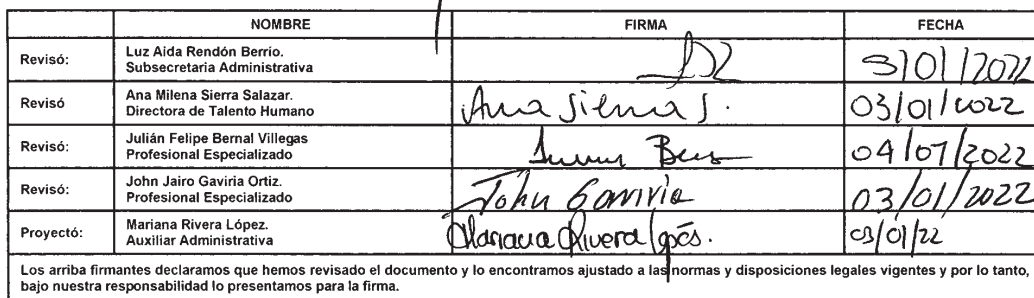 NOMBRE FIRMA FECHA
Revisó: Luz Aida Rendón Berrio.
Subsecretaria Administrativa
3/01/2022
Revisó Ana Milena Sierra Salazar.
Directora de Talento Humano
Ana Sierra S. 03/01/2022
Revisó: Julián Felipe Bernal Villegas
Profesional Especializado
04/01/2022
Revisó: John Jairo Gaviria Ortiz.
Profesional Especializado
John Gaviria 03/01/2022
Proyectó: Mariana Rivera López.
Auxiliar Administrativa
Mariana Rivera López. 03/01/22
Los arriba firmantes declaramos que hemos revisado el documento y lo encontramos ajustado a las normas y disposiciones legales vigentes y por lo tanto,
bajo nuestra responsabilidad lo presentamos para la firma.